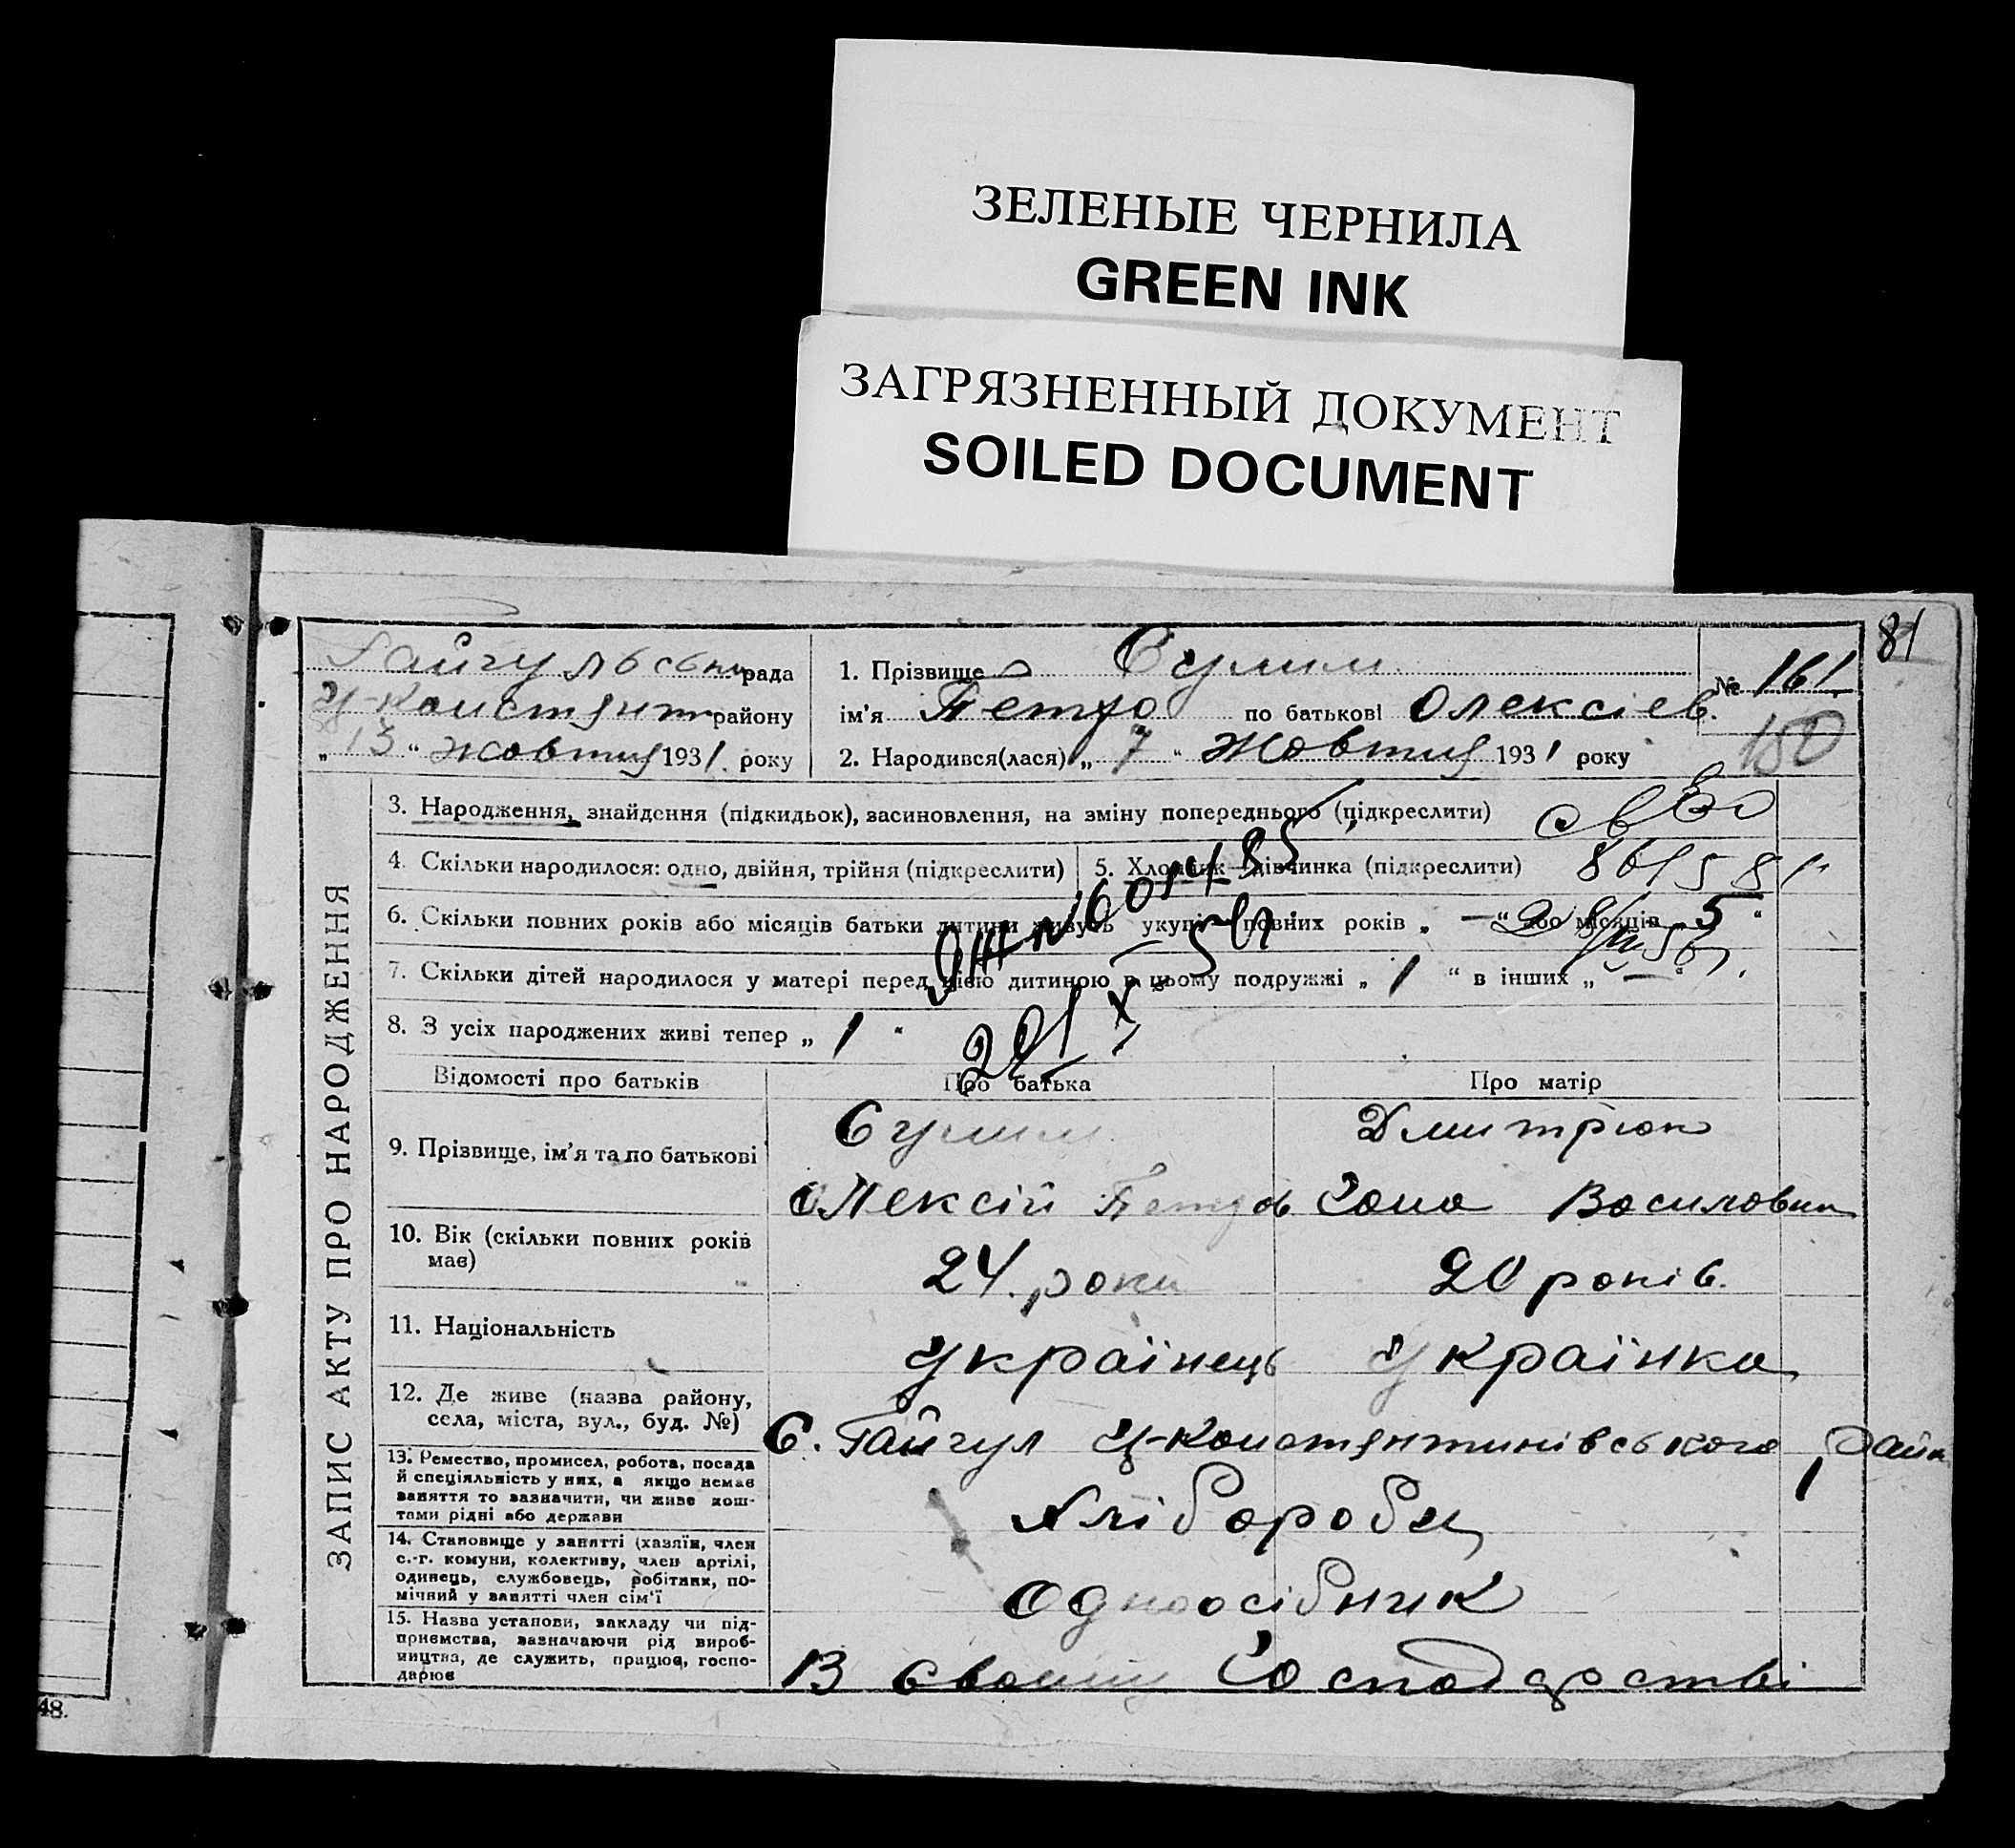 ЗЕЛЕНЫЕ ЧЕРНИЛА
GREEN INK
ЗАГРЯЗНЕННЫЙ ДОКУМЕНТ
SOILED DOCUMENT
81
рада
району
„ 13 “ жовтня 1931 року
1. Прізвище Сулим
ім'я Петро по батькові Олексієв.
2. Народився(лася) „ 7 “ Жовтня 1931 року
№ 161
150
ЗАПИС АКТУ ПРО НАРОДЖЕННЯ
3. Народження, знайдення (підкидьок), засиновлення, на зміну попереднього (підкреслити)
4. Скільки народилося: одно, двійня, трійня (підкреслити)
5. Хлопчик дівчинка (підкреслити)
6. Скільки повних років або місяців батьки дитини живуть укупі повних років „ — “ або місяців 5 “
7. Скільки дітей народилося у матері перед цією дитиною в цьому подружжі „ 1 “ в інших „ — “
8. З усіх народжених живі тепер „ 1 “
Відомості про батьків
Про батька
Про матір
9. Прізвище, ім'я та по батькові
Сулим
Олексій Петров
Дмитрюк
Василовна
10. Вік (скільки повних років має)
24. роки
20 років.
11. Національність
Українець
Українка
12. Де живе (назва району,
села, міста, вул., буд. №)
С. Гайчул Ц-Констянтинівського Райн
13. Ремество, промисел, робота, посада
й спеціяльність у них, а якщо немає
заняття то зазначити, чи живе кош-
тами рідні або держави
Хлібороби
14. Становище у занятті (хазяїн, член
с.-г. комуни, колективу, член артілі,
одинець, службовець, робітник, по-
мічний у занятті член сім'ї
Одноосібник
15. Назва установи, закладу чи під-
приємства, зазначаючи рід вироб-
ництва, де служить, працює, госпо-
дарює
В своєму Господарстві
48.